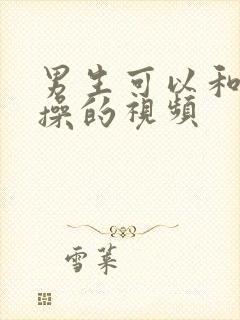 男生可以和
操的视频
雪菜